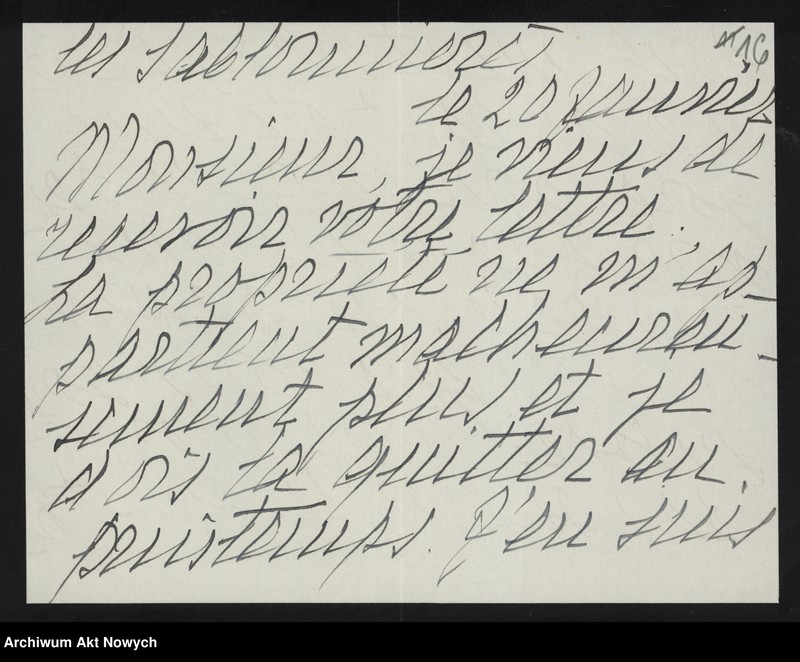 Les Sablonnières
16
le 20 Janvier
Monsieur, je viens de
recevoir votre lettre.
La propriété ne m'ap-
partient malheureu-
sement plus et je
dois la quitter au
printemps. J'en suis
Archiwum Akt Nowych